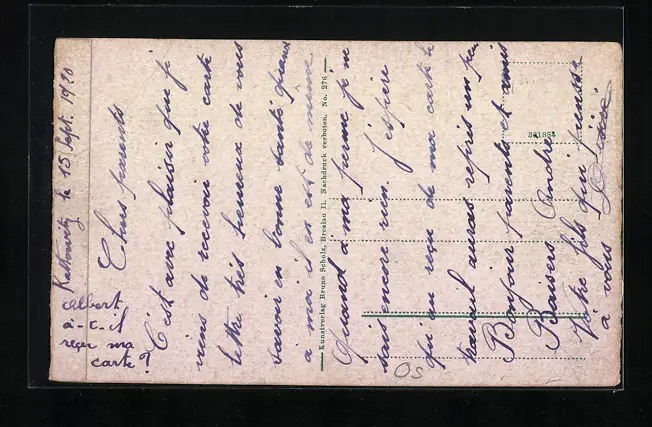 Kattowitz le 15 Sept. 1920
Chers parents
C'est avec plaisir que je
viens de recevoir votre carte
lettre très heureux de vous
savoir en bonne santé quand
à moi il en est de même
Quand à ma perme je n
sais encore rien. J'espère
qu'au reçu de ma carte le
travail auras repris un peu
Bonjour parents et amis
Baisers André
Votre fils qui pense
à vous
Albert
a-t-il
reçu ma
carte ?
Kunstverlag Bruno Scholz, Breslau II. Nachdruck verboten. No. 276
Os